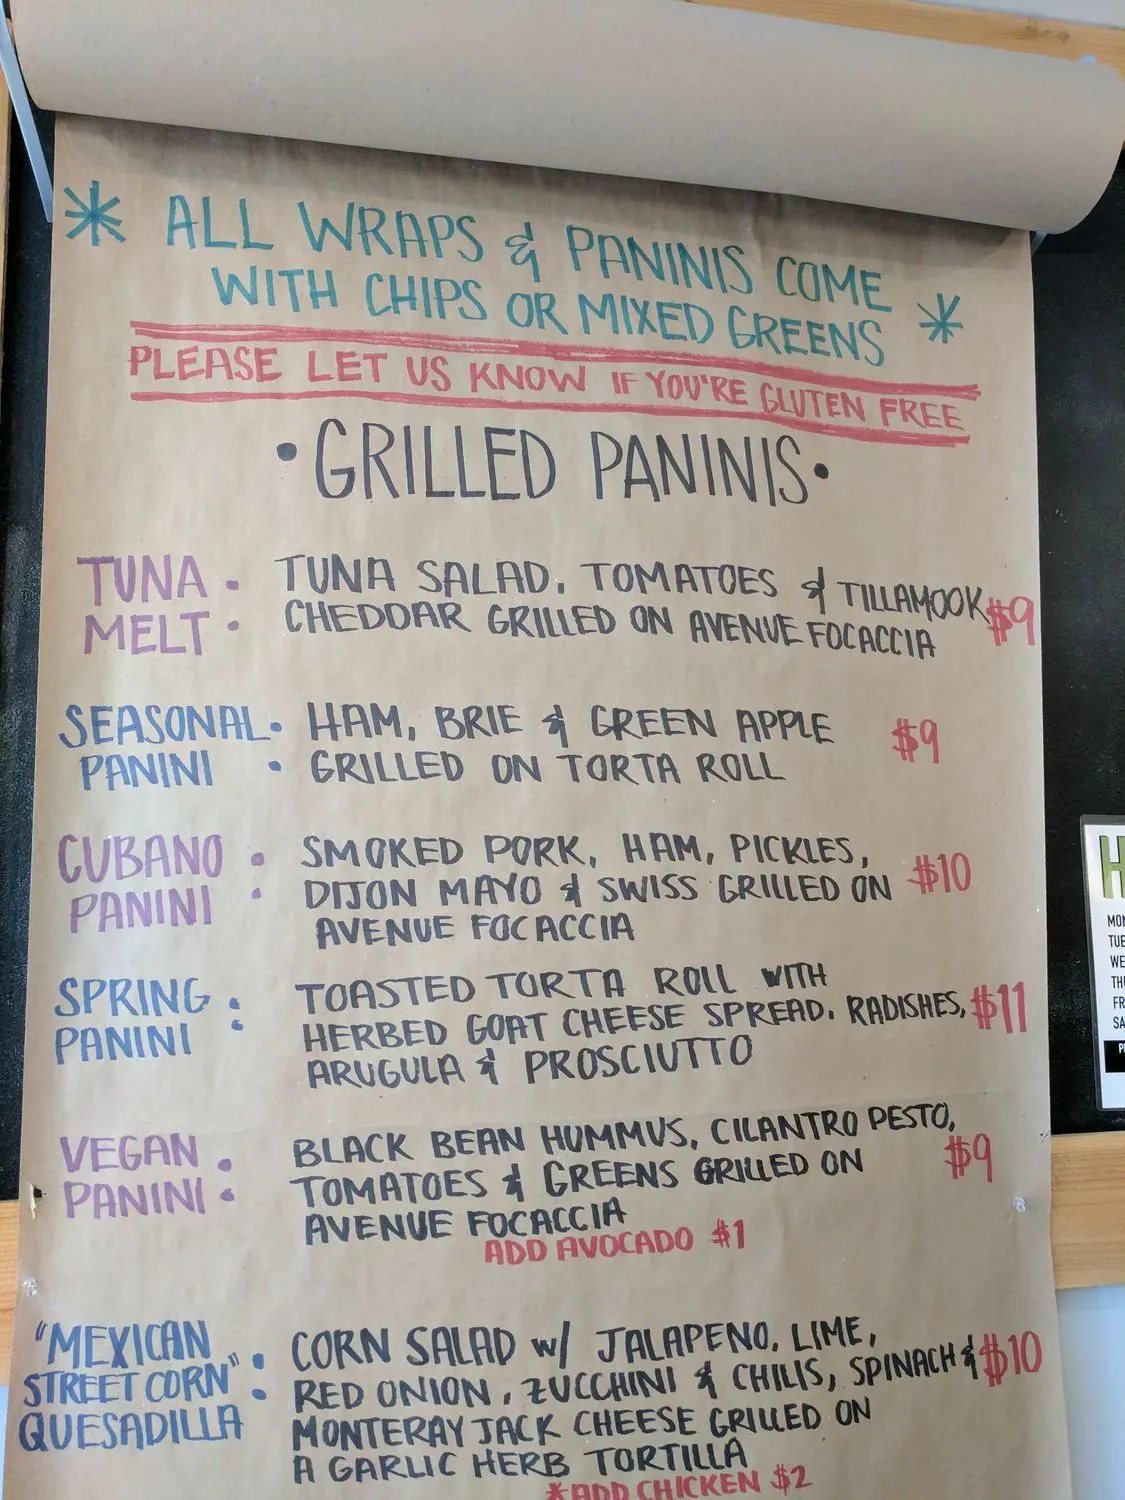 * ALL WRAPS & PANINIS COME
WITH CHIPS OR MIXED GREENS *
PLEASE LET US KNOW IF YOU'RE GLUTEN FREE
• GRILLED PANINIS •
TUNA MELT : TUNA SALAD, TOMATOES & TILLAMOOK $9
CHEDDAR GRILLED ON AVENUE FOCACCIA
SEASONAL PANINI : HAM, BRIE & GREEN APPLE $9
GRILLED ON TORTA ROLL
CUBANO PANINI : SMOKED PORK, HAM, PICKLES, $10
DIJON MAYO & SWISS GRILLED ON
AVENUE FOCACCIA
SPRING PANINI : TOASTED TORTA ROLL WITH
HERBED GOAT CHEESE SPREAD, RADISHES, $11
ARUGULA & PROSCIUTTO
VEGAN PANINI : BLACK BEAN HUMMUS, CILANTRO PESTO, $9
TOMATOES & GREENS GRILLED ON
AVENUE FOCACCIA
ADD AVOCADO $1
"MEXICAN STREET CORN" QUESADILLA : CORN SALAD w/ JALAPENO, LIME,
RED ONION, ZUCCHINI & CHILIS, SPINACH & $10
MONTERAY JACK CHEESE GRILLED ON
A GARLIC HERB TORTILLA
*ADD CHICKEN $2